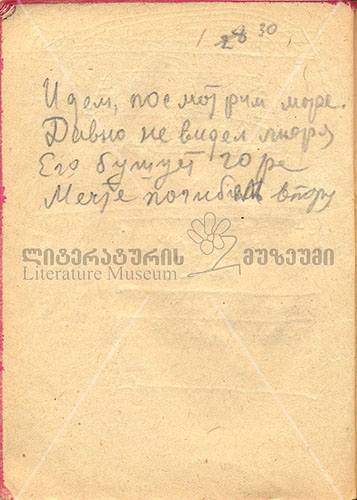 28 30
Идем, посмотрим море.
Давно не видел моря
Его бушует горе
Мечте погибшей впору
ლიტერატურის მუზეუმი
Literature Museum